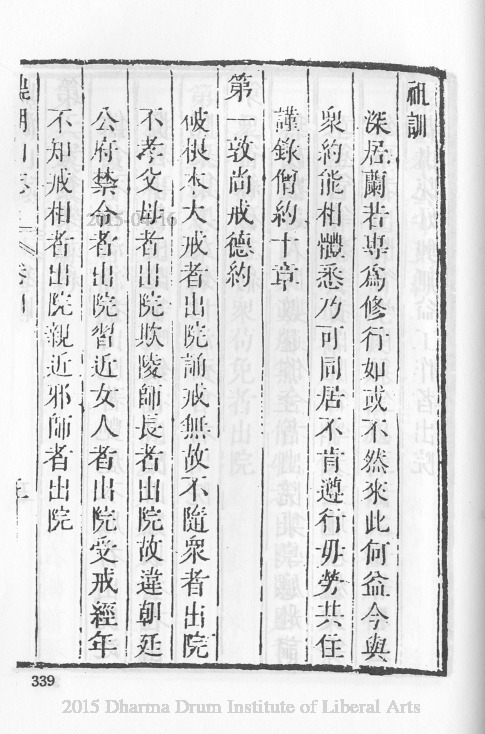 祖訓
深居蘭若專爲修行如或不然來此何益今與
衆約能相體悉乃可同居不肯遵行毋勞共住
謹錄僧約十章
第一敦尚戒德約
破根本大戒者出院誦戒無故不隨衆者出院
不孝父母者出院欺陵師長者出院故違朝廷
公府禁令者出院習近女人者出院受戒經年
不知戒相者出院親近邪師者出院
339
2015 Dharma Drum Institute of Liberal Arts